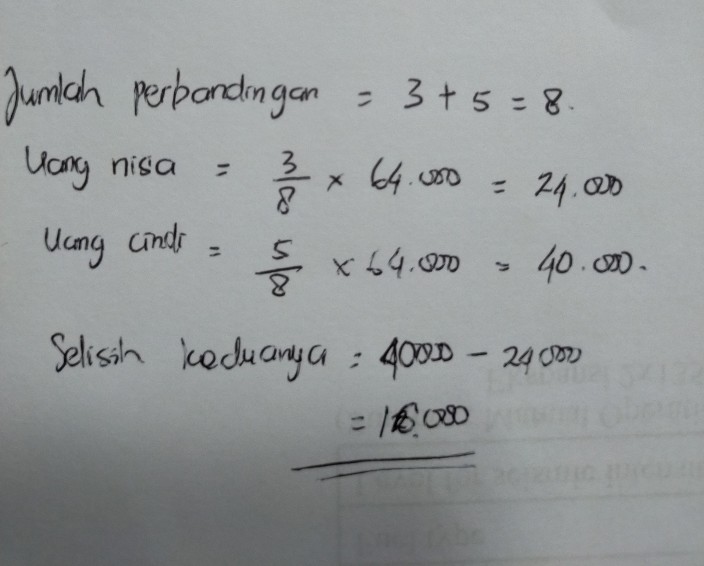 Jumlah perbandingan = 3 + 5 = 8.
Uang nisa = 3/8 × 64.000 = 24.000
Uang cindi = 5/8 × 64.000 = 40.000.
Selisih keduanya = 40000 - 24000
= 16.000